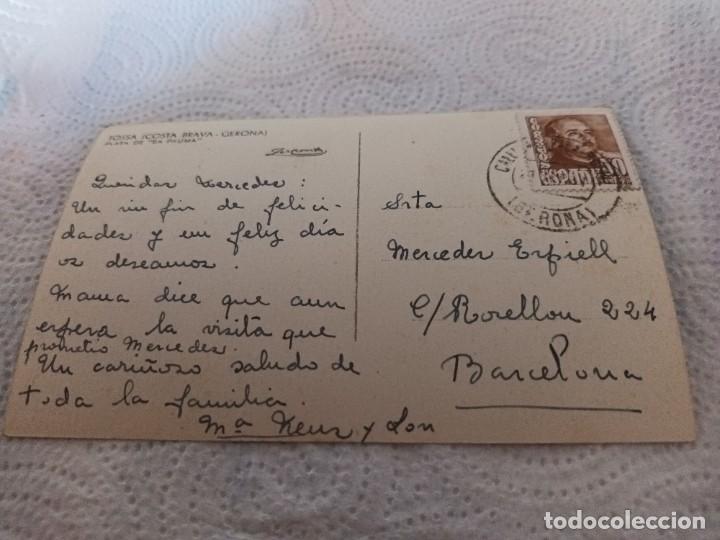 TOSSA (COSTA BRAVA - GERONA)
PLAYA DE "SA PALMA"
Queridas Mercedes:
Un sin fin de felici-
dades y un feliz día
os deseamos.
Mama dice que aun
espera la visita que
prometio Mercedes.
Un cariñoso saludo de
toda la familia.
Mª y
CORREOS
ESPAÑA
(GERONA)
Srta
Mercedes Espiell
C/Rosellon 224
Barcelona
todocoleccion.net